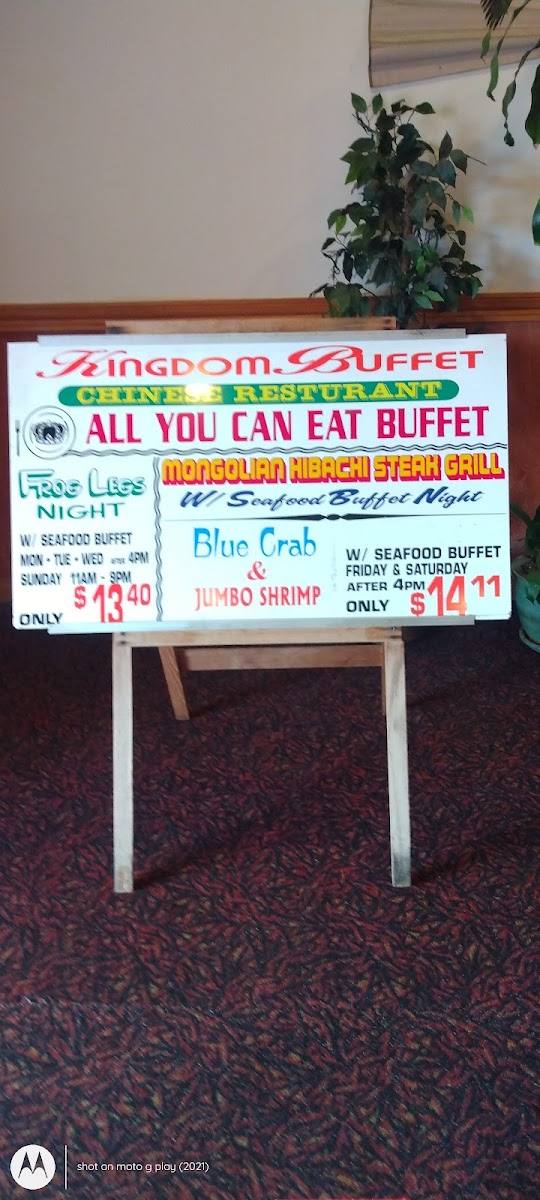 Kingdom Buffet
CHINESE RESTURANT
ALL YOU CAN EAT BUFFET
FROG LEGS
NIGHT
W/ SEAFOOD BUFFET
MON • TUE • WED AFTER 4PM
SUNDAY 11AM - 9PM
ONLY $13.40
MONGOLIAN HIBACHI STEAK GRILL
W/ Seafood Buffet Night
Blue Crab
&
JUMBO SHRIMP
W/ SEAFOOD BUFFET
FRIDAY & SATURDAY
AFTER 4PM
ONLY $14.11
shot on moto g play (2021)